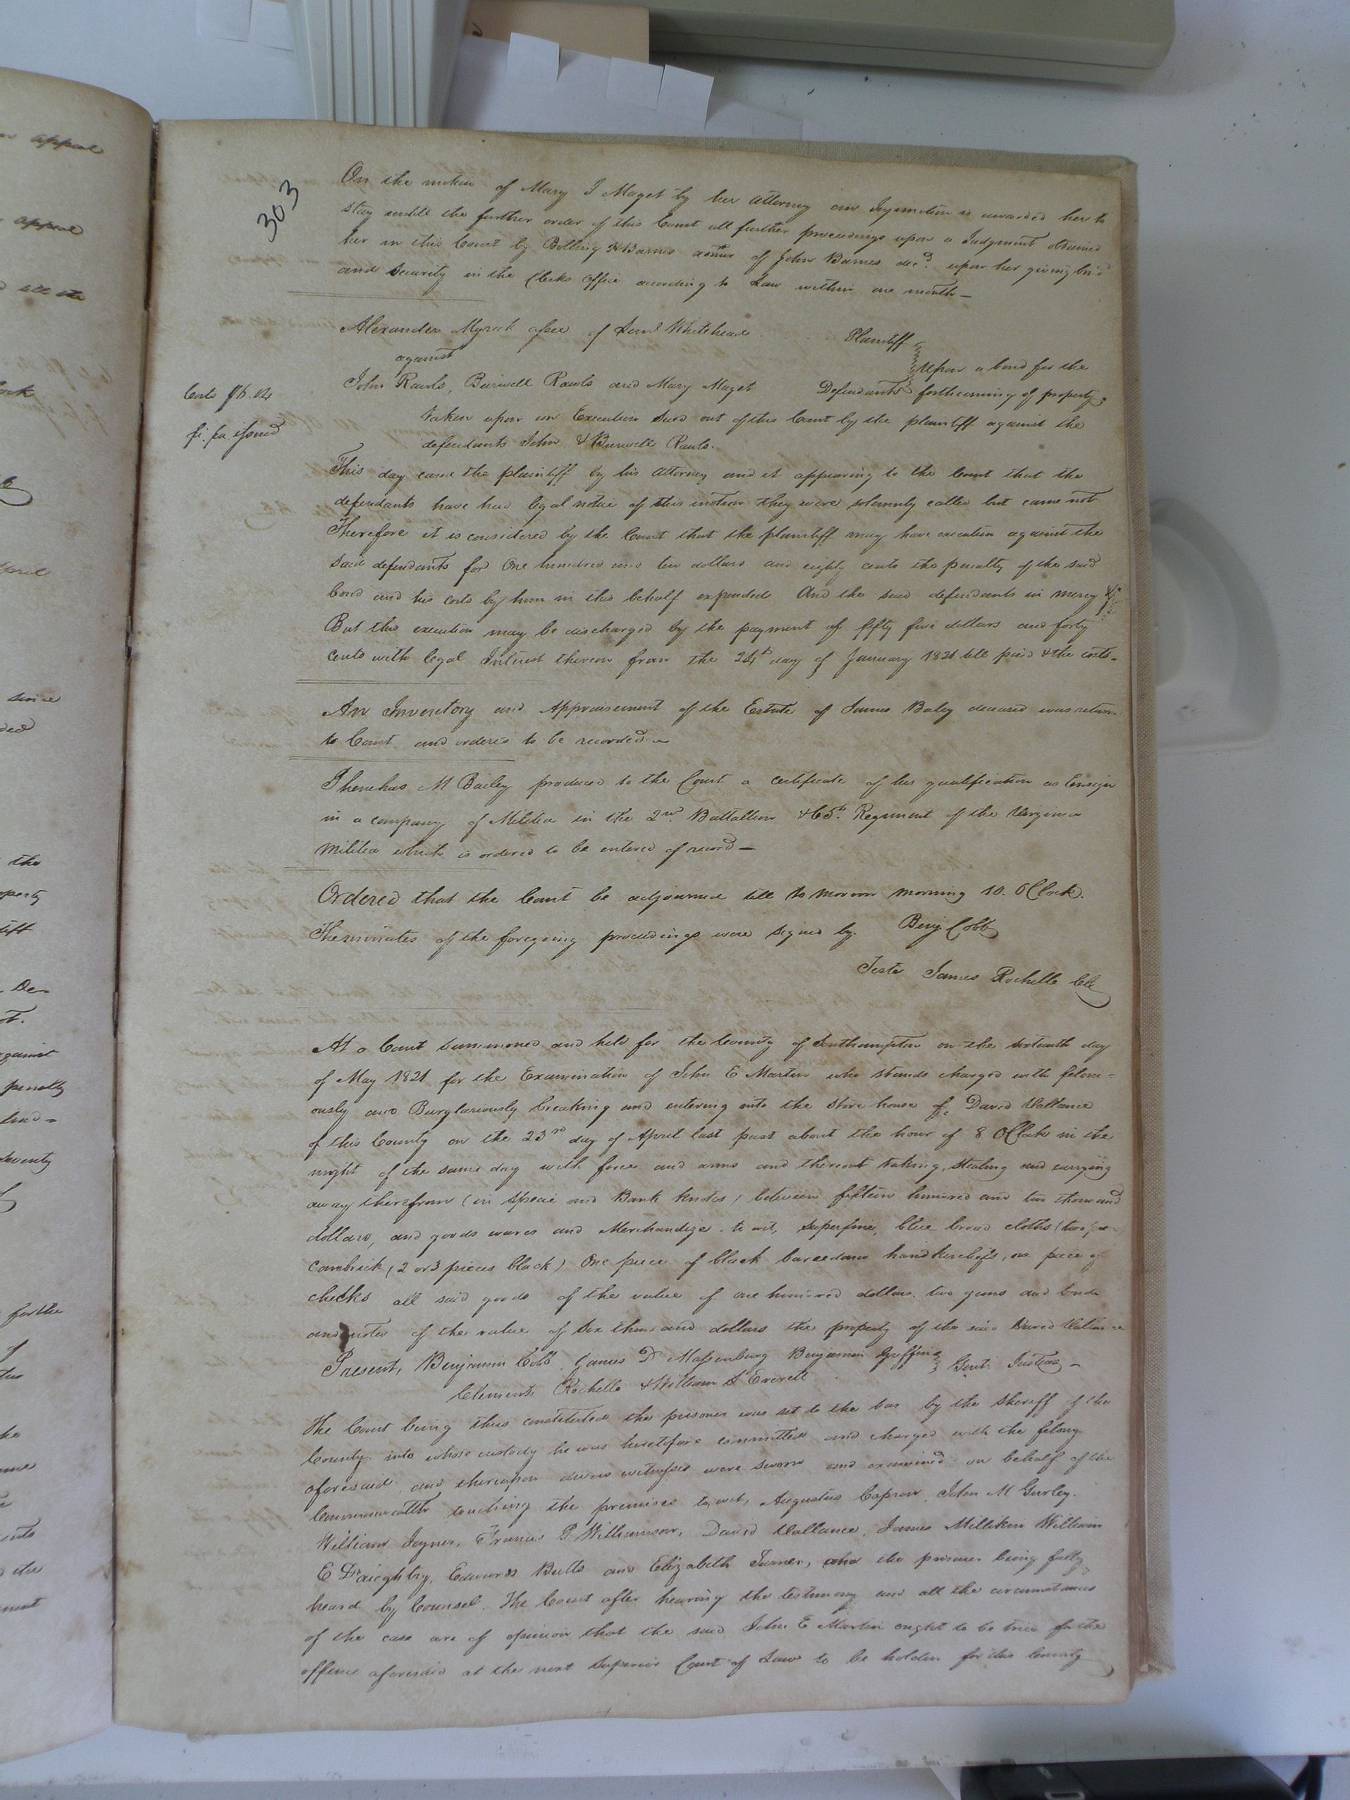 303
On the motion of Mary J Maget by her attorney an Injunction is awarded her to
stay until the further order of this Court all further proceedings upon a Judgment obtained
her in this Court by Bolling H Barnes of John Barnes decd. upon her giving bond
and security in the Clerks office according to Law within one month
Alexander Myrick assee of Whitehead Plaintiff
against
Upon a bond for the
John Rawls, Burwell Rawls and Mary Maget Defendants forthcoming of property,
Costs
fi: fa issued
taken upon an Execution sued out of this Court by the plaintiff against the
defendants John & Burwell Rawls.
This day came the plaintiff by his attorney and it appearing to the Court that the
defendants have had legal notice of this motion they were solemnly called but came not
Therefore it is considered by the Court that the plaintiff may have execution against the
said defendants for One hundred and ten dollars and eighty cents the penalty of the said
bond and his costs by him in this behalf expended And the said defendants in mercy &c
But this execution may be discharged by the payment of fifty five dollars and forty
cents with legal Interest thereon from the 24th day of January 1821 till paid & the costs-
An Inventory and Appraisement of the Estate of James deceased was return
to Court and ordered to be recorded
M Bailey produced to the Court a certificate of his qualification as Ensign
in a company of Militia in the 2nd Battallion & 65th Regiment of the Virginia
Militia which is ordered to be entered of record
Ordered that the Court be adjourned till to morrow morning 10. OClock.
The minutes of the foregoing proceedings were signed by. Benj Cobb
Teste James Rochelle Clk
At a Court summoned and held for the County of Southampton on the sixteenth day
of May 1821 for the Examination of John E Martin who stands charged with feloni-
ously and Burglariously breaking and entering into the store house of David Wallance
of this County on the 23rd day of April last past about the hour of 8 OClock in the
night of the same day with force and arms and thereout taking, stealing and carrying
away therefrom (in specie and Bank Notes) between fifteen hundred and two thousand
dollars, and goods wares and Merchandize. to wit, Superfine, blue broad cloths
cambrick, (2 or 3 pieces black) One piece of black handkerchiefs, one piece of
checks all said goods of the value of one hundred dollars. two guns and
and notes of the value of six thousand dollars the property of the said David Wallance
Present, Benjamin Cobb, James D Massenburg Benjamin Griffin
Gent. Justices
Clements Rochelle & William Everett
The Court being thus constituted the prisoner was set to the bar by the sheriff of the
County into whose custody he was heretofore committed and charged with the felony
aforesaid, and thereupon divers witnesses were sworn and examined on behalf of the
Commonwealth touching the premises to wit, Augustus John M Gurley.
William Joyner, Francis P Williamson, David Wallance, James Milliken William
E Edwards Butts and Elizabeth Turner, and the prisoner being fully
heard by Counsel. The Court after hearing the testimony and all the circumstances
of the case are of opinion that the said John E Martin ought to be tried for the
offence aforesaid at the next Superior Court of Law to be holden for this County